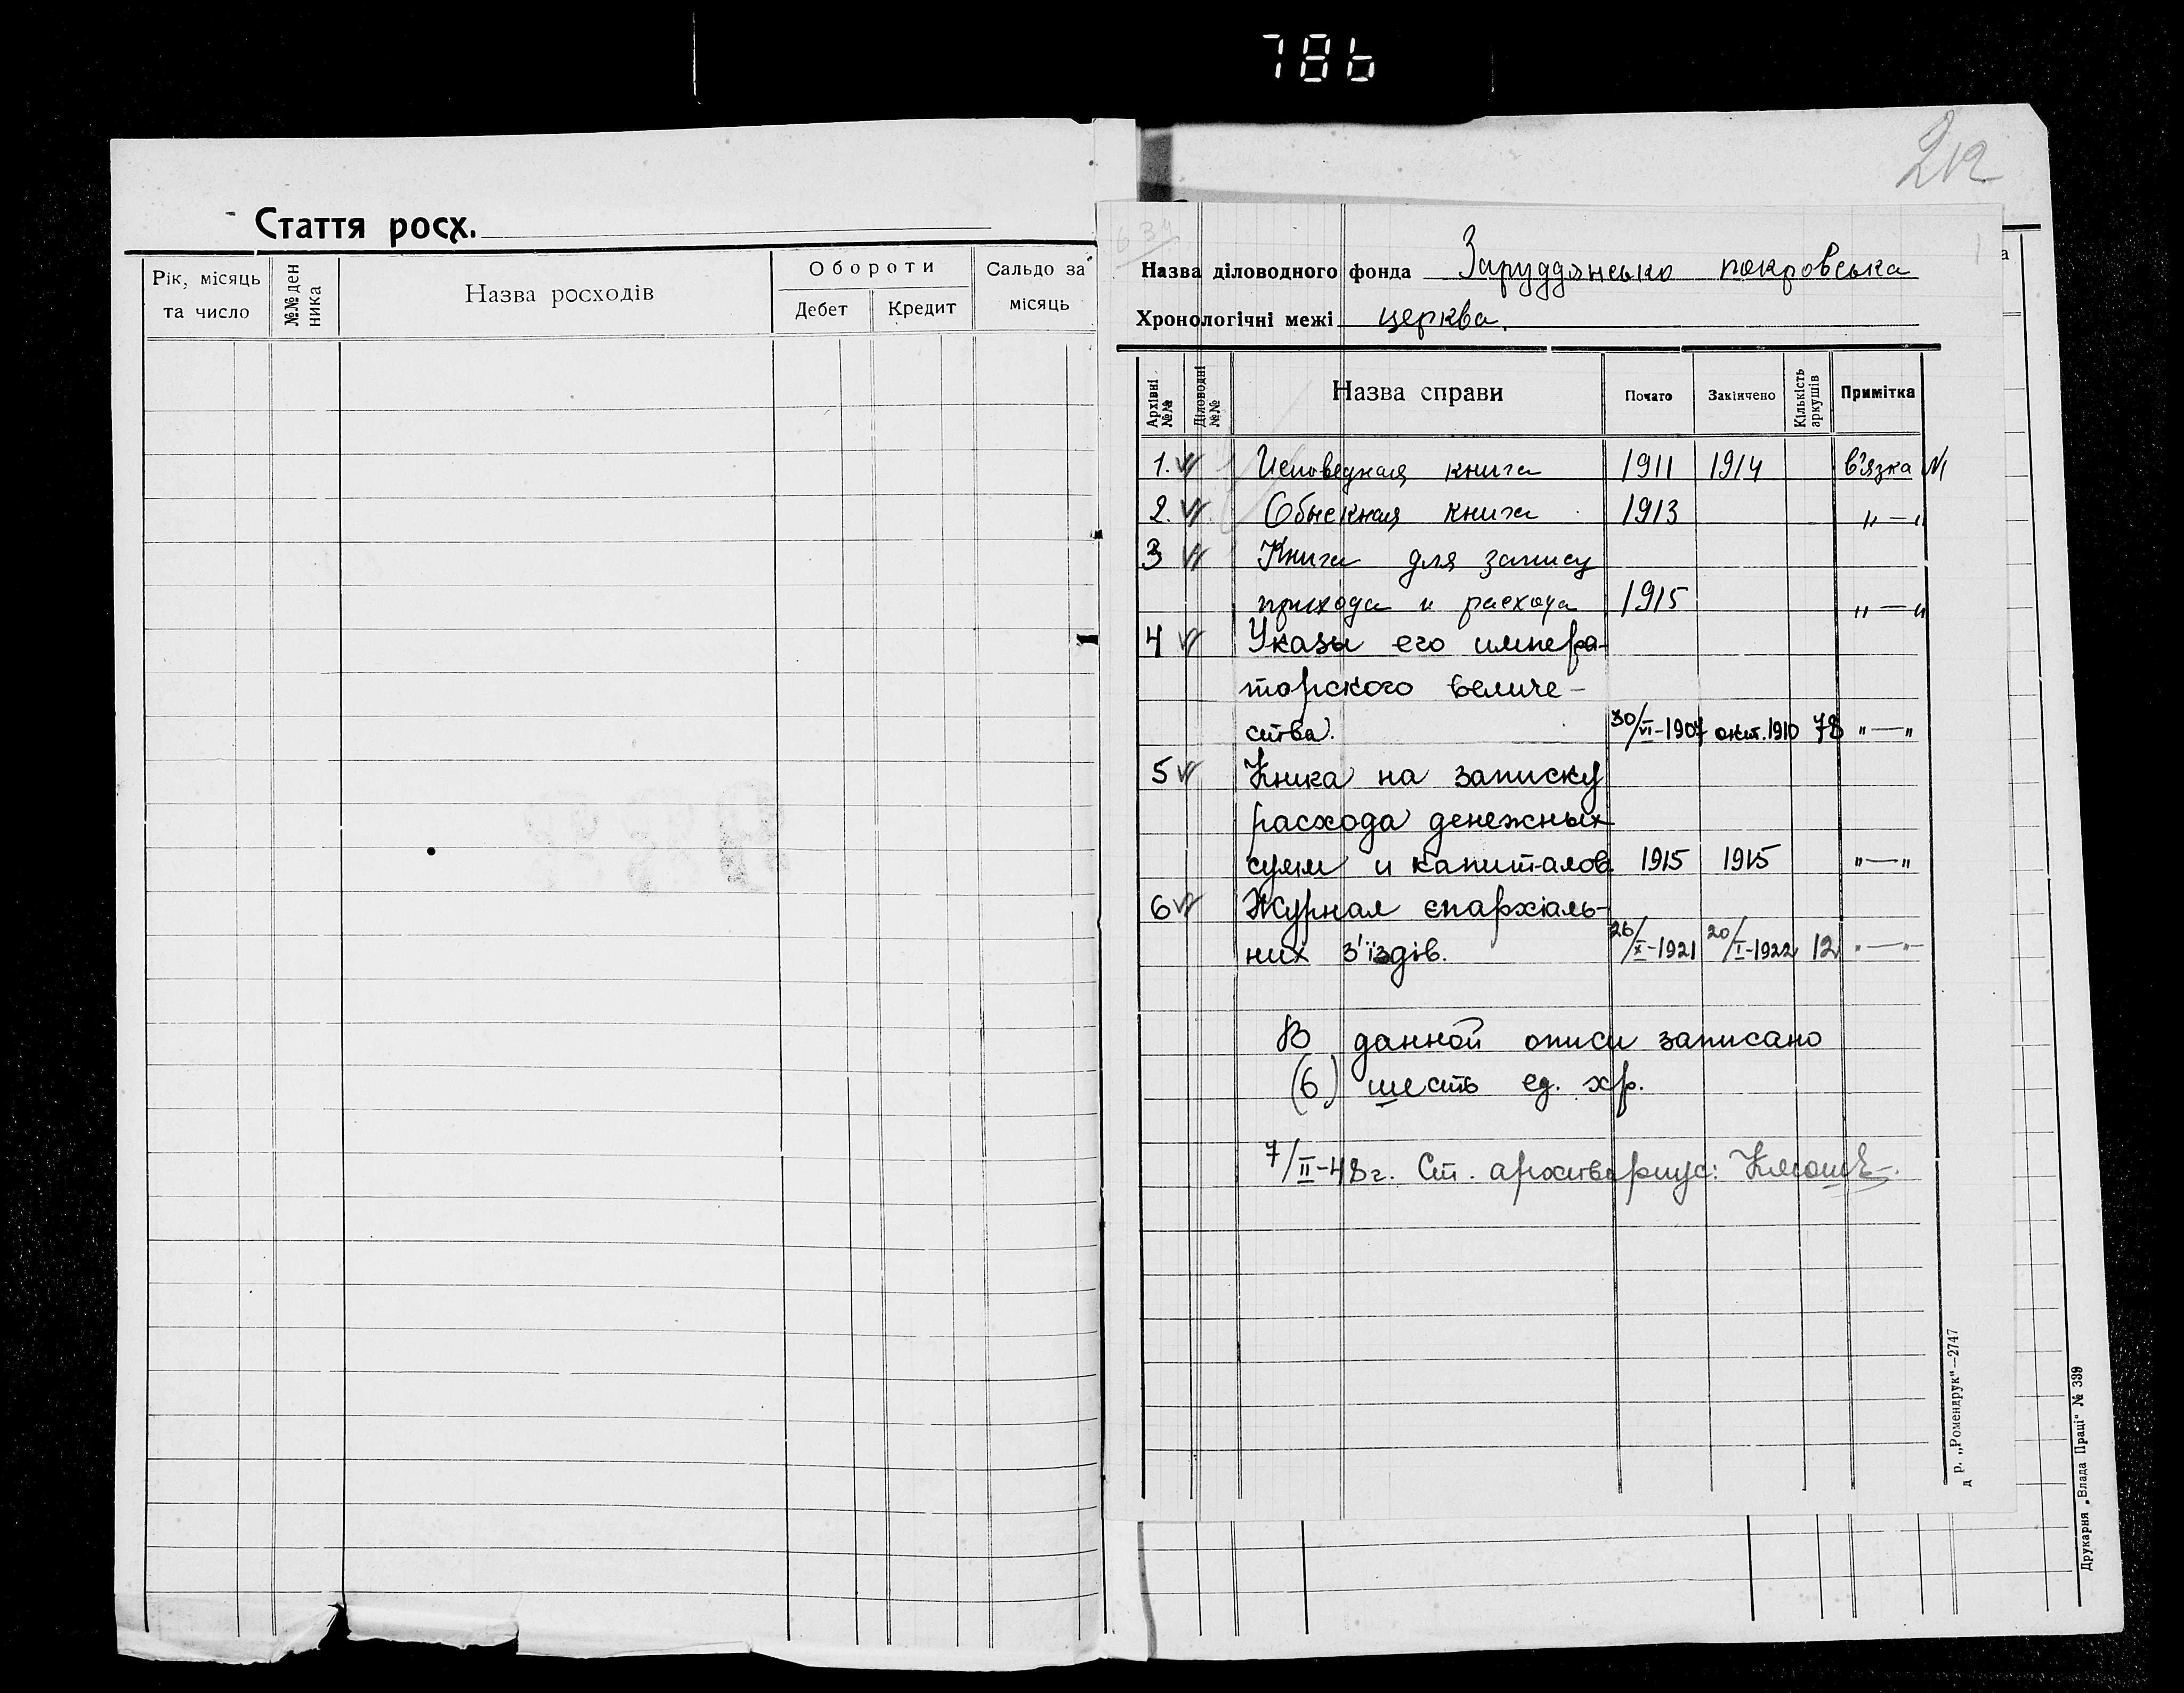 786
Стаття росх.
Рік, місяць та число
№№ ден ника
Назва росходів
Обороти
Дебет
Кредит
Сальдо за місяць
212
634
1
а
Назва діловодного фонда Заруддянсько покровська
Хронологічні межі церква.
Архівні №№
Діловодні №№
Назва справи
Почато
Закінчено
Кількість аркушів
Примітка
1. V Исповедная книга 1911 1914 в'язка №1
2. V Обыскная книга 1913 " — "
3 V Книга для запису
прихода и расхода 1915 " — "
4 V Указы его импера-
торского величе-
ства. 30/VI-1907 окт. 1910 78 " — "
5 V Книга на записку
расхода денежных
сумм и капиталов. 1915 1915 " — "
6 V Журнал єпархіаль-
них з'їздів. 26/X-1921 20/I-1922 12 " — "
В данной описи записано
(6) шесть ед. хр.
7/II-48 г. Ст. архивариус:
д р. „Ромендрук“—2747
Друкарня „Влада Праці“ № 339